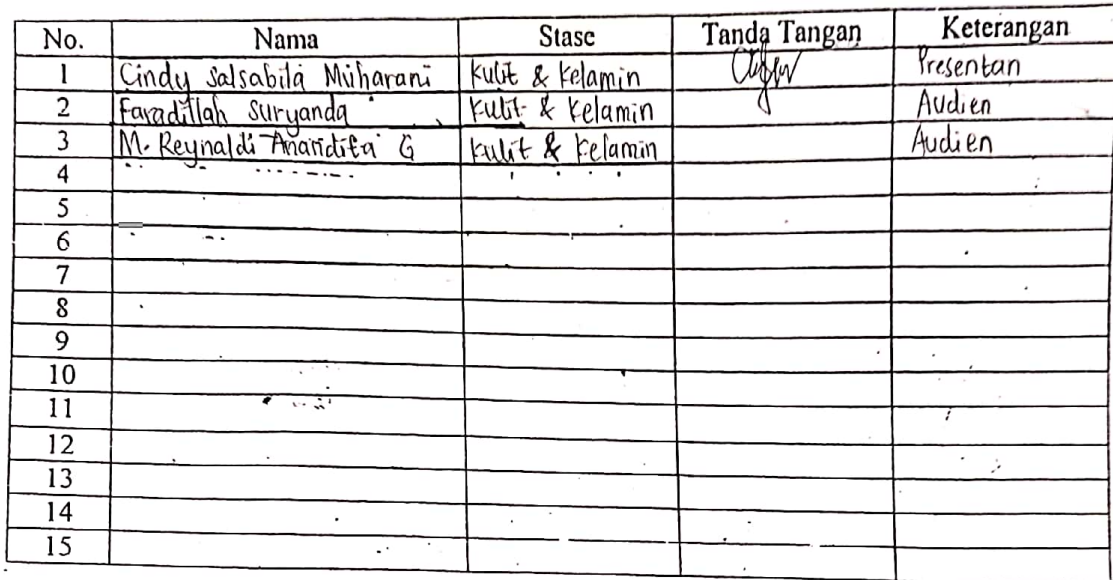 No. Nama Stase Tanda Tangan Keterangan
1 Cindy Salsabila Muharani Kulit & Kelamin Presentan
2 Faradillah Suryanda Kulit & Kelamin Audien
3 M. Reynaldi Anandita G Kulit & Kelamin Audien
4
5
6
7
8
9
10
11
12
13
14
15